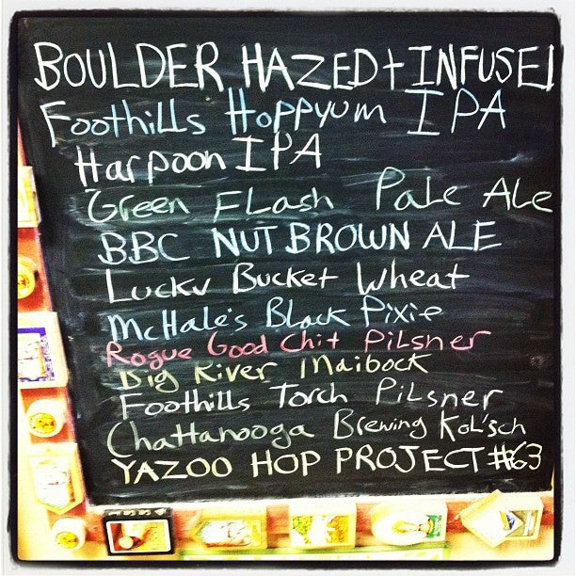 BOULDER HAZED + INFUSED
Foothills Hoppyum IPA
Harpoon IPA
Green FLash Pale Ale
BBC NUT BROWN ALE
Lucky Bucket Wheat
McHale's Black Pixie
Rogue Good Chit PiLsner
Big River Maibock
Foothills Torch PiLsner
Chattanooga Brewing KoL'sch
YAZOO HOP PROJECT #63